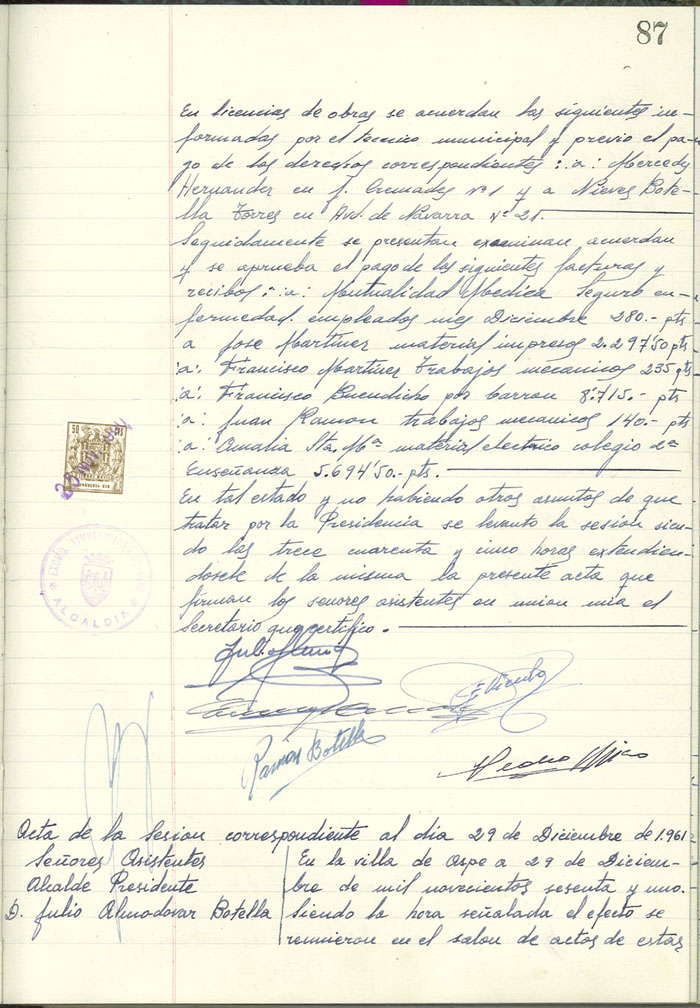 87
En licencias de obras se acuerdan las siguientes in-
formadas por el tecnico municipal y previo el pa-
go de los derechos correspondientes :.a: Mercedes
Hernandez en J. Cremades nº 1 y a Nieves Bote-
lla Torres en Avd. de Navarra Nº 21.
Seguidamente se presentan examinan acuerdan
y se aprueba el pago de las siguientes facturas y
recibos :.a: Mutualidad Medica Seguro en-
fermedad. empleados mes Diciembre 280.- pts
a Jose Martinez material impresos 2.297'50 pts
:a: Francisco Martinez Trabajos mecanicos 235 pts
:a: Francisco por 8.715.- pts
:a: Juan Ramon trabajos mecanicos 140.- pts.
:a: Amalia Sta. Mª material electrico colegio 2ª
Enseñanza 5.694'50.- pts.
En tal estado y no habiendo otros asuntos de que
tratar por la Presidencia se levanto la sesion sien-
do las trece cuarenta y cinco horas extendien-
dosele de la misma la presente acta que
firman los señores asistentes en union mia el
Secretario que certifico.
50
ALCALDIA
Ramon Botella
Pedro
Acta de la Sesion correspondiente al dia 29 de Diciembre de 1.961
Señores Asistentes
Alcalde Presidente
D. Julio Almodovar Botella
En la villa de Aspe a 29 de Diciem-
bre de mil novecientos sesenta y uno.
Siendo la hora señalada el efecto se
reunieron en el salon de actos de estas